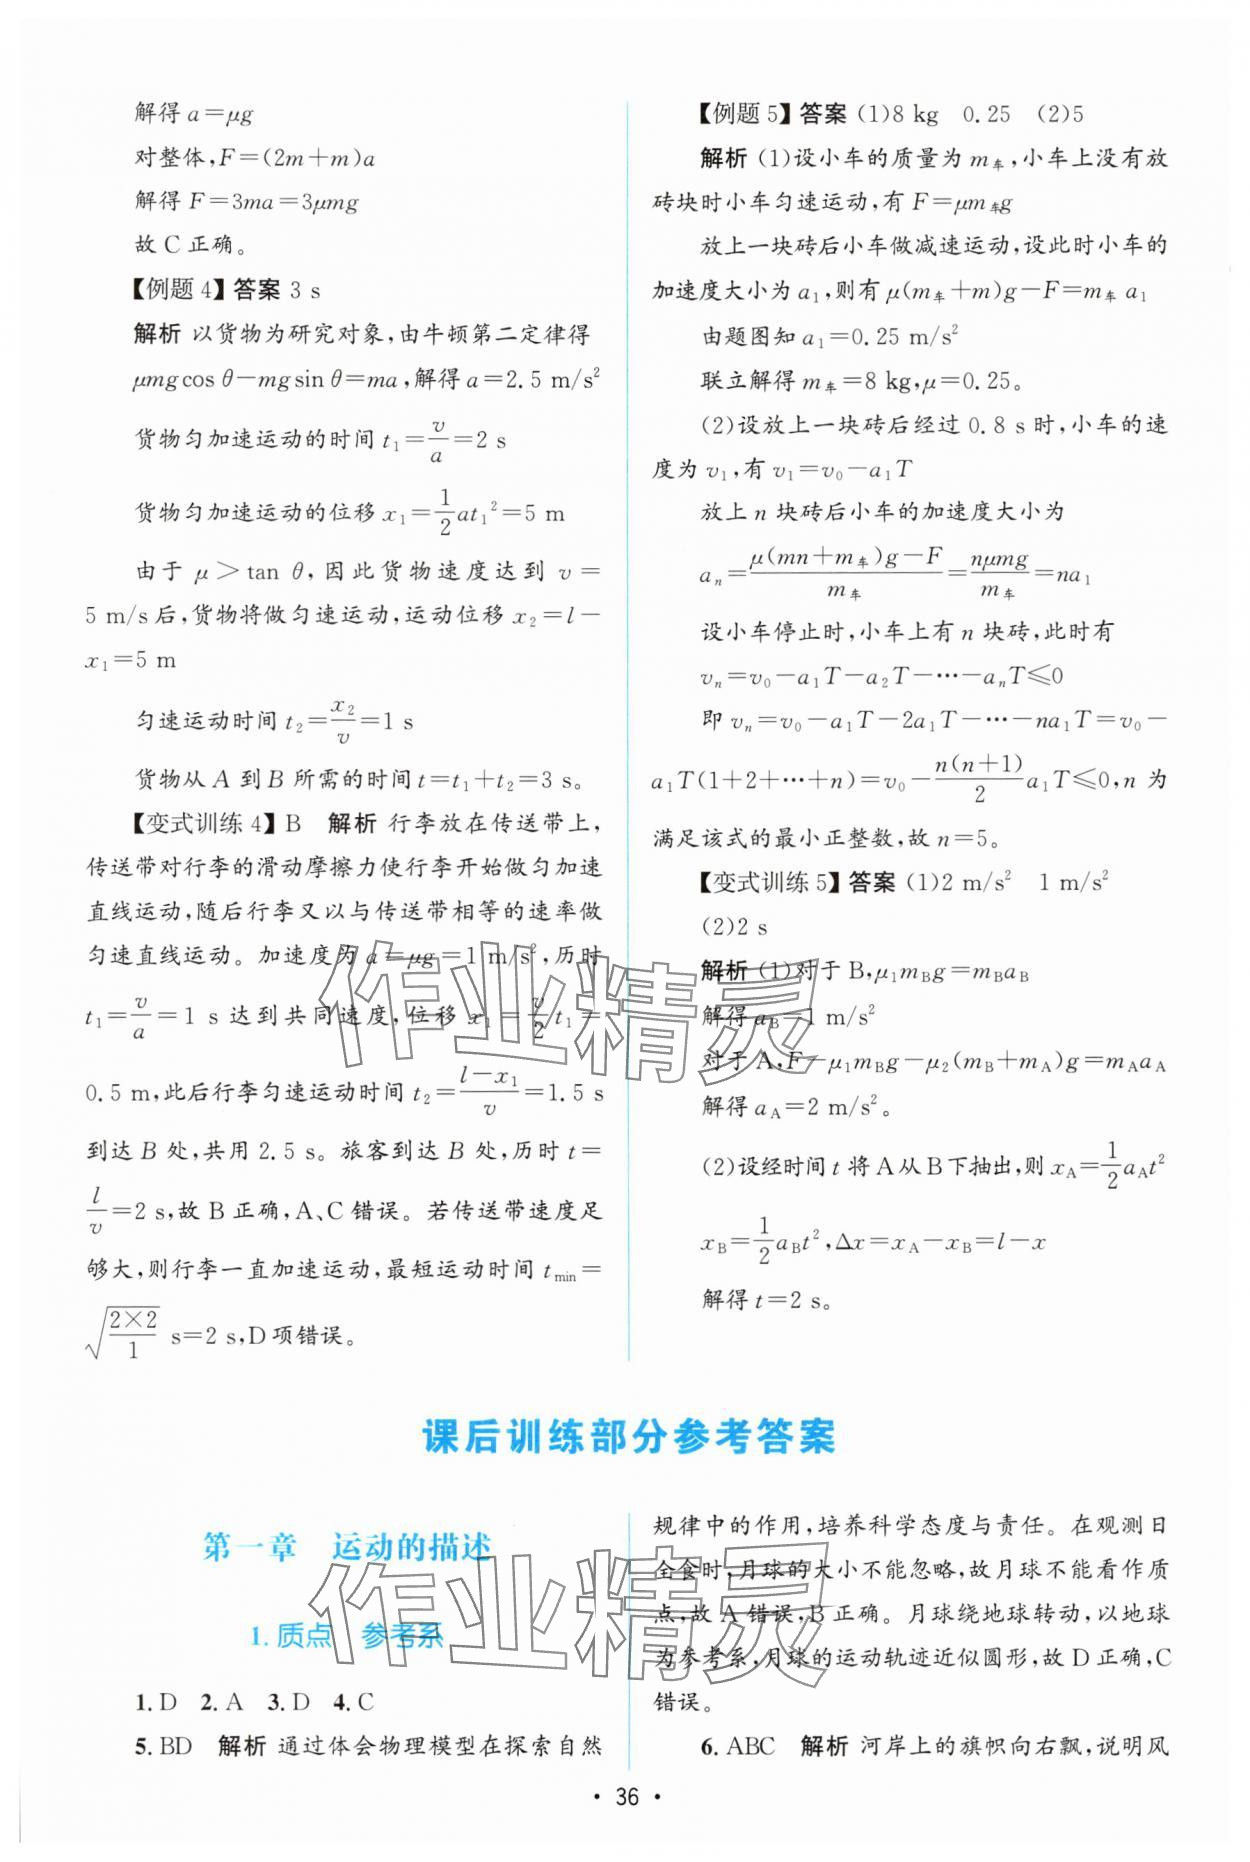 解得 a=μg
对整体,F=(2m+m)a
解得 F=3ma=3μmg
故 C 正确。
【例题 4】答案 3 s
解析 以货物为研究对象,由牛顿第二定律得
μmgcos θ-mgsin θ=ma,解得 a=2.5 m/s²
货物匀加速运动的时间 t₁=v/a=2 s
货物匀加速运动的位移 x₁=1/2at₁²=5 m
由于 μ>tan θ,因此货物速度达到 v=
5 m/s 后,货物将做匀速运动,运动位移 x₂=l-
x₁=5 m
匀速运动时间 t₂=x₂/v=1 s
货物从 A 到 B 所需的时间 t=t₁+t₂=3 s。
【变式训练 4】B 解析 行李放在传送带上,
传送带对行李的滑动摩擦力使行李开始做匀加速
直线运动,随后行李又以与传送带相等的速率做
匀速直线运动。加速度为 a=μg=1 m/s²,历时
t₁=v/a=1 s 达到共同速度,位移 x₁=v/2t₁=
0.5 m,此后行李匀速运动时间 t₂=(l-x₁)/v=1.5 s
到达 B 处,共用 2.5 s。旅客到达 B 处,历时 t=
l/v=2 s,故 B 正确,A、C 错误。若传送带速度足
够大,则行李一直加速运动,最短运动时间 tmin=
√(2×2/1) s=2 s,D 项错误。
【例题 5】答案 (1)8 kg 0.25 (2)5
解析 (1)设小车的质量为 m车,小车上没有放
砖块时小车匀速运动,有 F=μm车g
放上一块砖后小车做减速运动,设此时小车的
加速度大小为 a₁,则有 μ(m车+m)g-F=m车 a₁
由题图知 a₁=0.25 m/s²
联立解得 m车=8 kg,μ=0.25。
(2)设放上一块砖后经过 0.8 s 时,小车的速
度为 v₁,有 v₁=v₀-a₁T
放上 n 块砖后小车的加速度大小为
aₙ=(μ(mn+m车)g-F)/m车=nμmg/m车=na₁
设小车停止时,小车上有 n 块砖,此时有
vₙ=v₀-a₁T-a₂T-…-aₙT≤0
即 vₙ=v₀-a₁T-2a₁T-…-na₁T=v₀-
a₁T(1+2+…+n)=v₀-n(n+1)/2a₁T≤0,n 为
满足该式的最小正整数,故 n=5。
【变式训练 5】答案 (1)2 m/s² 1 m/s²
(2)2 s
解析 (1)对于 B,μ₁mBg=mBaB
解得 aB=1 m/s²
对于 A,F-μ₁mBg-μ₂(mB+mA)g=mAaA
解得 aA=2 m/s²。
(2)设经时间 t 将 A 从 B 下抽出,则 xA=1/2aAt²
xB=1/2aBt²,Δx=xA-xB=l-x
解得 t=2 s。
作业精灵
课后训练部分参考答案
第一章 运动的描述
1. 质点 参考系
1. D 2. A 3. D 4. C
5. BD 解析 通过体会物理模型在探索自然
规律中的作用,培养科学态度与责任。在观测日
全食时,月球的大小不能忽略,故月球不能看作质
点,故 A 错误,B 正确。月球绕地球转动,以地球
为参考系,月球的运动轨迹近似圆形,故 D 正确,C
错误。
6. ABC 解析 河岸上的旗帜向右飘,说明风
作业精灵
· 36 ·